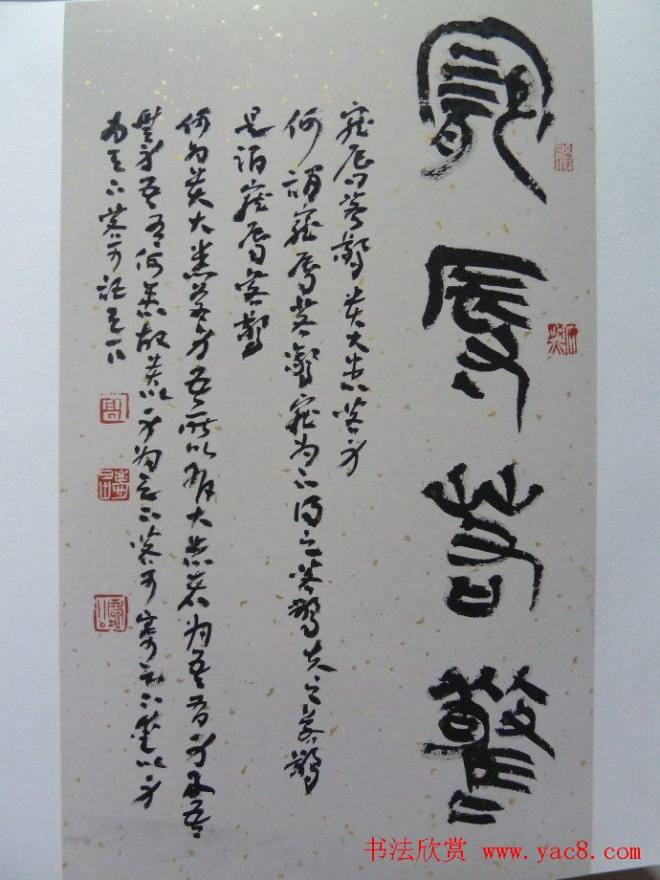 寵辱若驚
寵辱若驚貴大患若身
何謂寵辱若驚寵為下得之若驚失之若驚
是謂寵辱若驚
何為貴大患若身吾所以有大患者為吾有身及吾
無身吾有何患故貴以身為天下若可寄天下愛以身
為天下若可託天下
书法欣赏 www.yac8.com